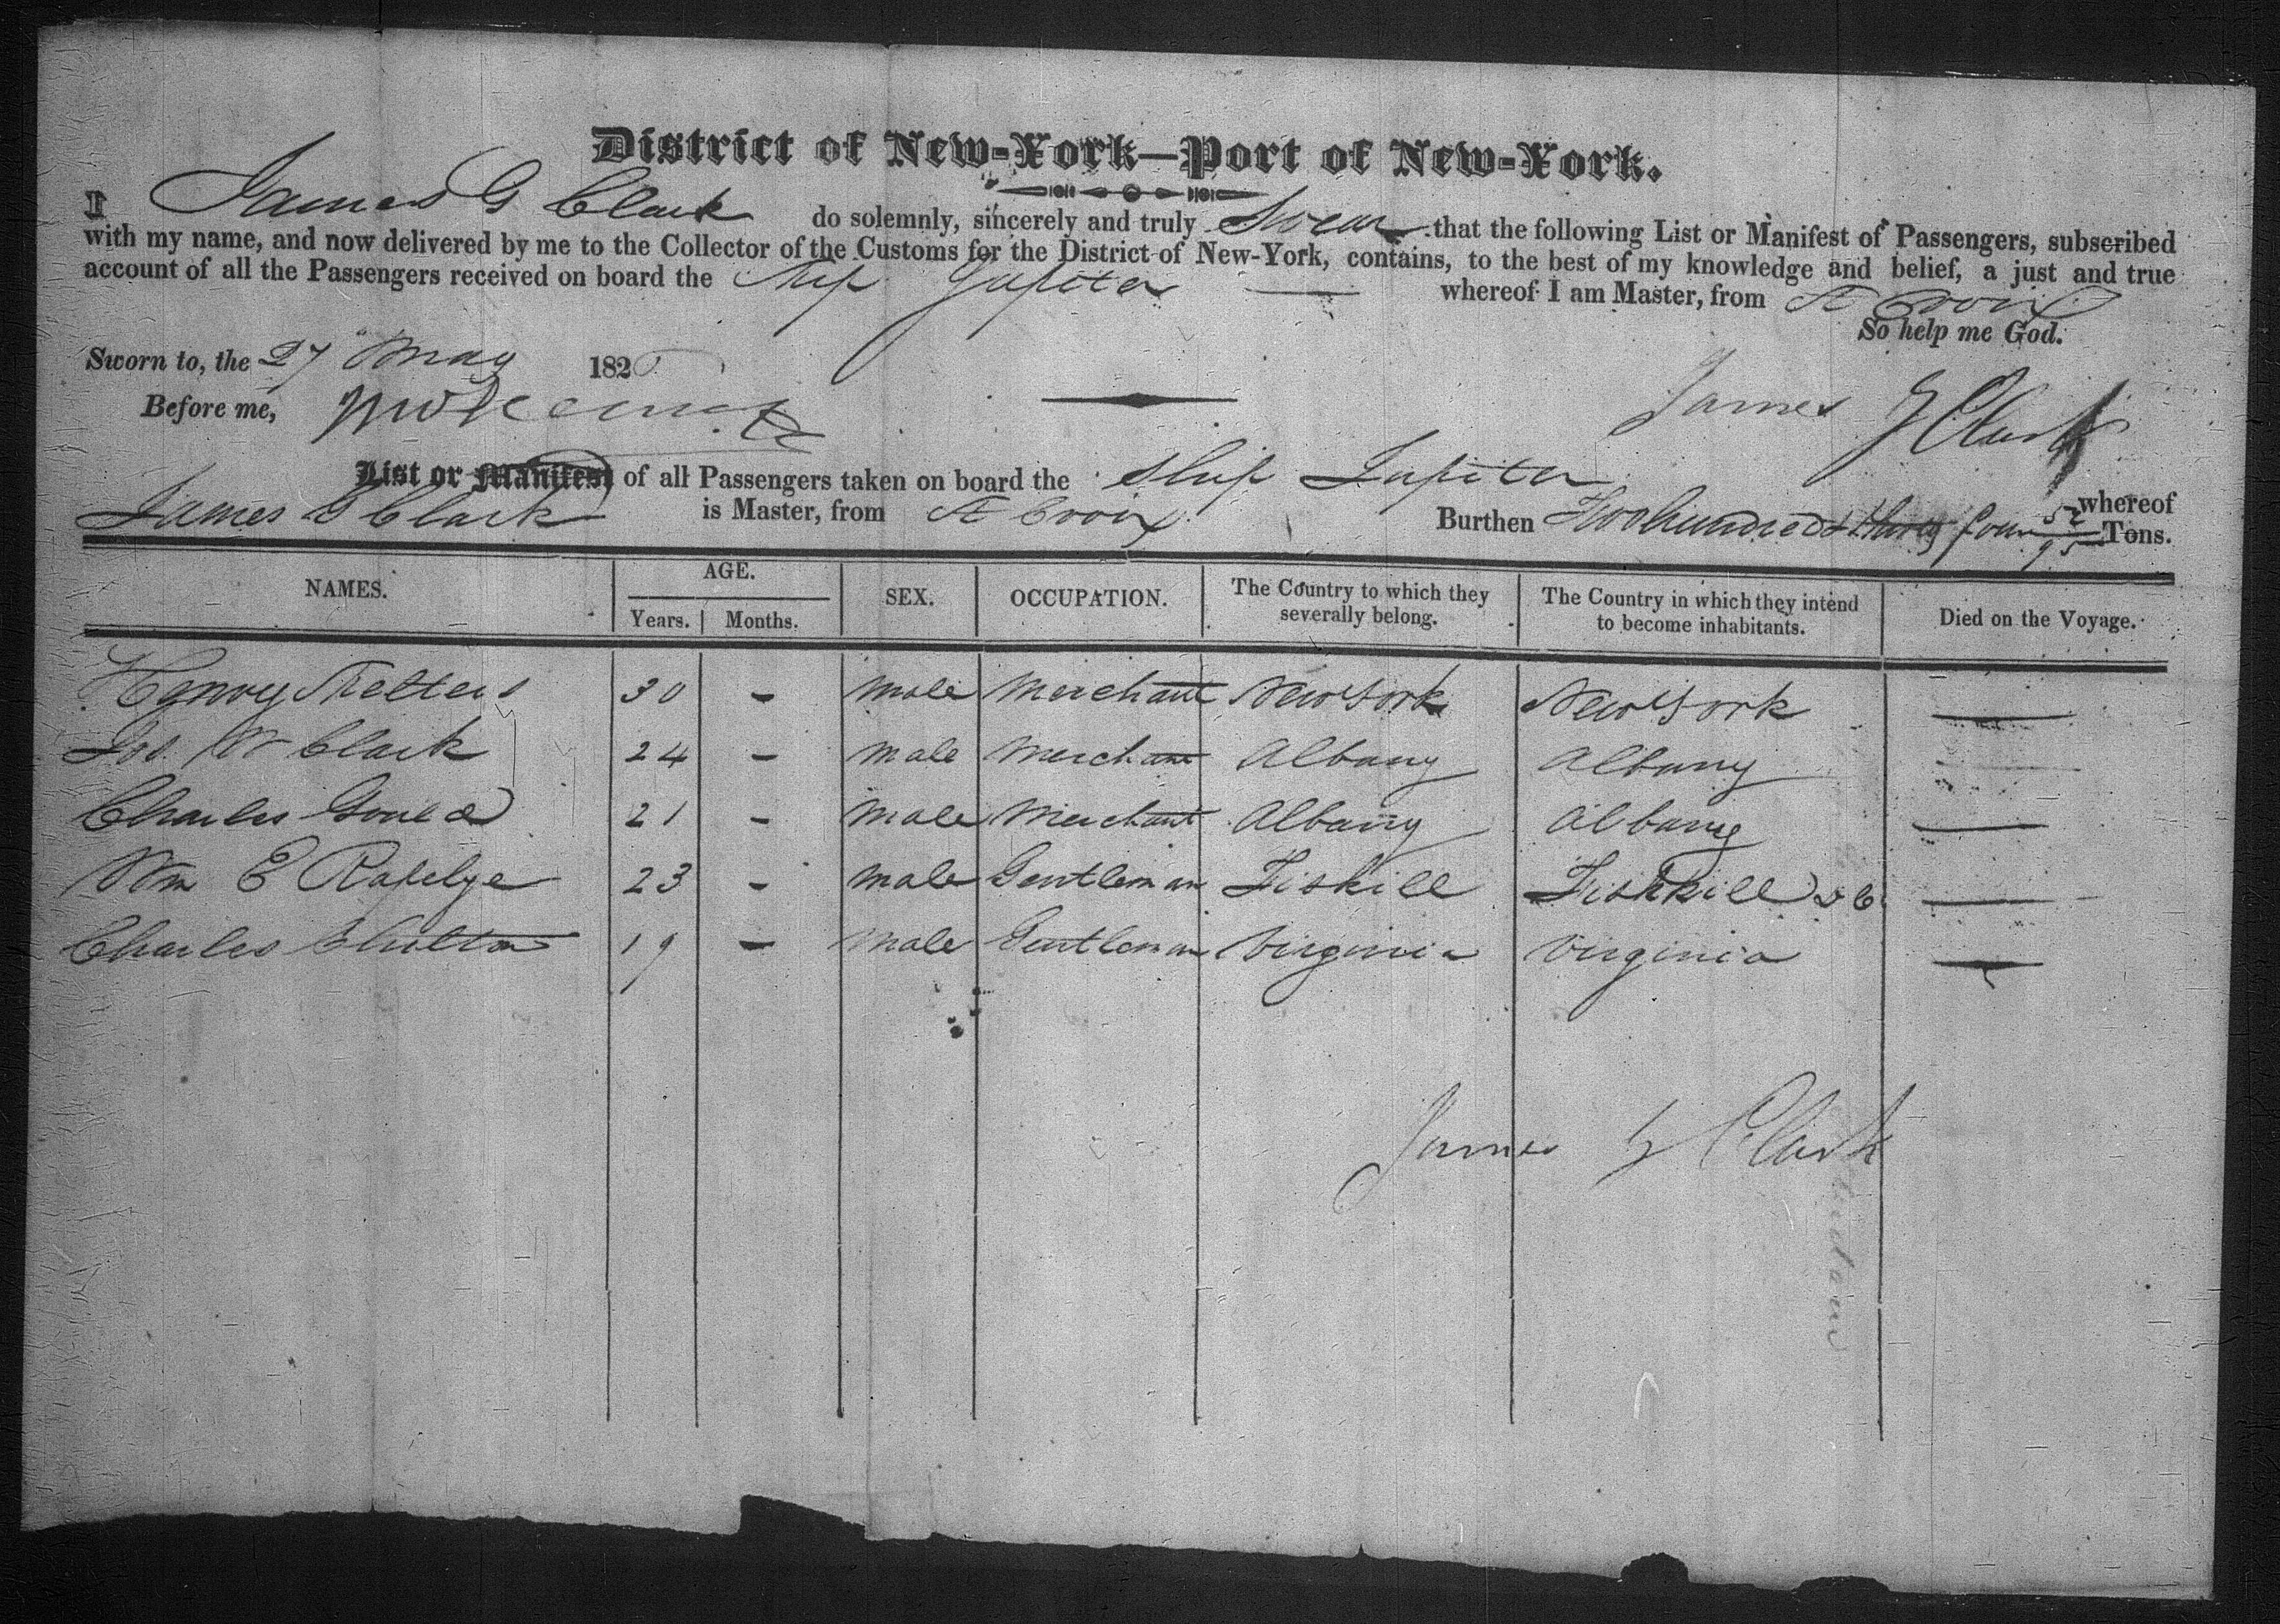 District of New-York—Port of New-York.
I James G Clark do solemnly, sincerely and truly Swear that the following List or Manifest of Passengers, subscribed
with my name, and now delivered by me to the Collector of the Customs for the District of New-York, contains, to the best of my knowledge and belief, a just and true
account of all the Passengers received on board the Ship Jupiter whereof I am Master, from St Croix
So help me God.
Sworn to, the 27 May 182
Before me,
James G Clark
List or Manifest of all Passengers taken on board the Ship Jupiter whereof
James G Clark is Master, from St Croix Burthen Two hundred & thirty four 52/95 Tons.
NAMES. AGE. SEX. OCCUPATION. The Country to which they severally belong. The Country in which they intend to become inhabitants. Died on the Voyage.
Years. Months.
Henry 30 - male Merchant New York New York —
Jos. W Clark 24 - male Merchant Albany Albany —
Charles Gould 21 - male Merchant Albany Albany —
Wm E Rapelye 23 - male Gentleman Fiskill Fishkill —
Charles 19 - male Gentleman Virginia Virginia —
James G Clark